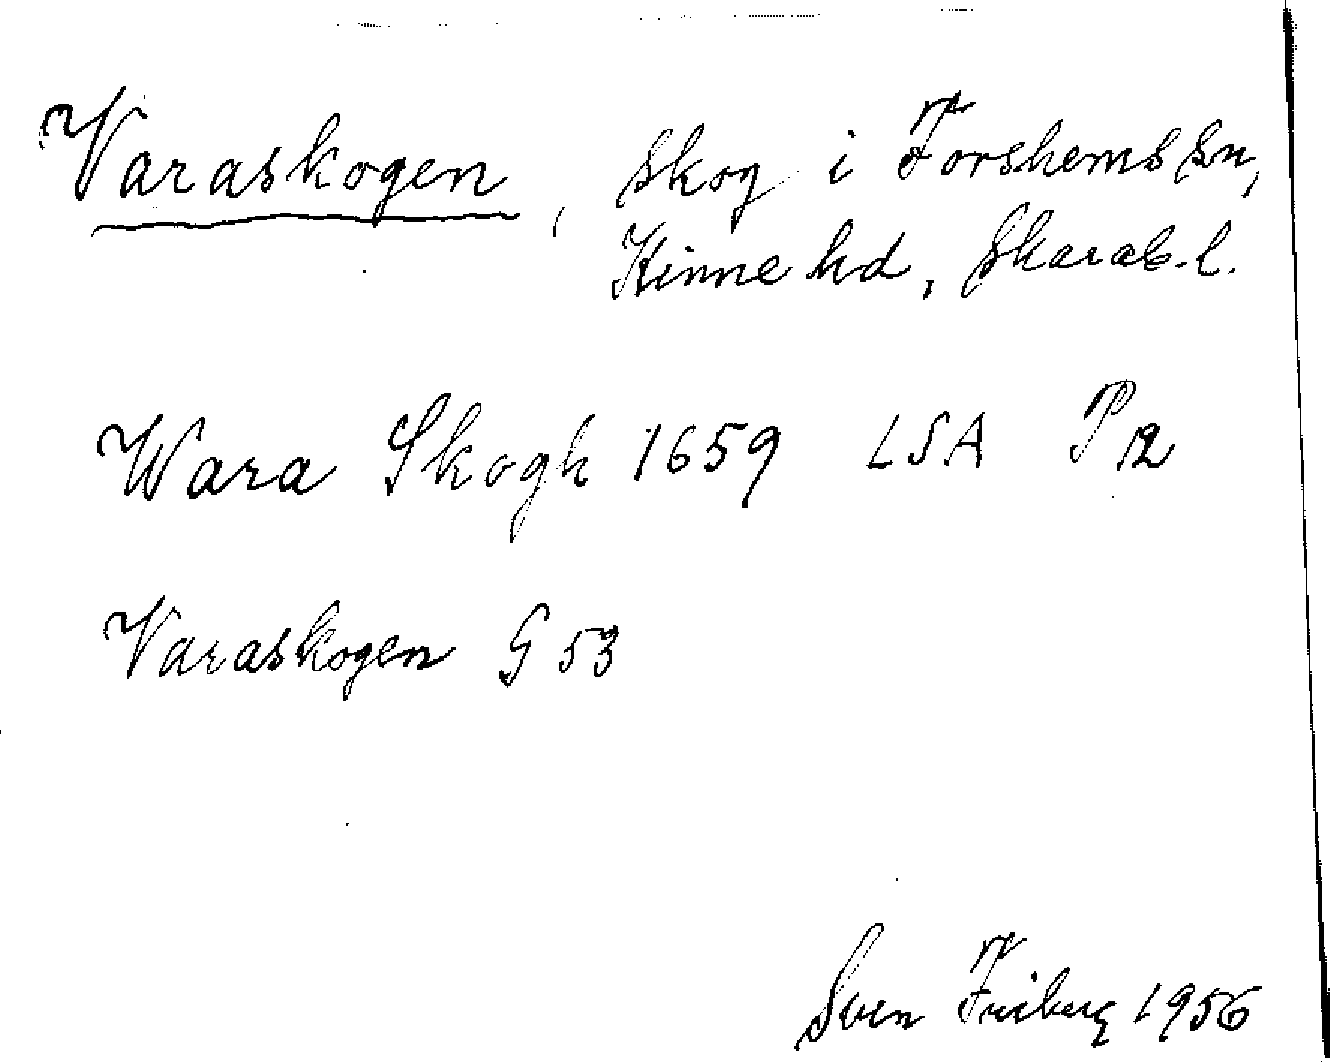 Varaskogen, skog i Forshems sn,
Kinne hd, Skarab. l.
Wara Skogh 1659 LSA P 12
Varaskogen G 53
Sven Friberg 1956